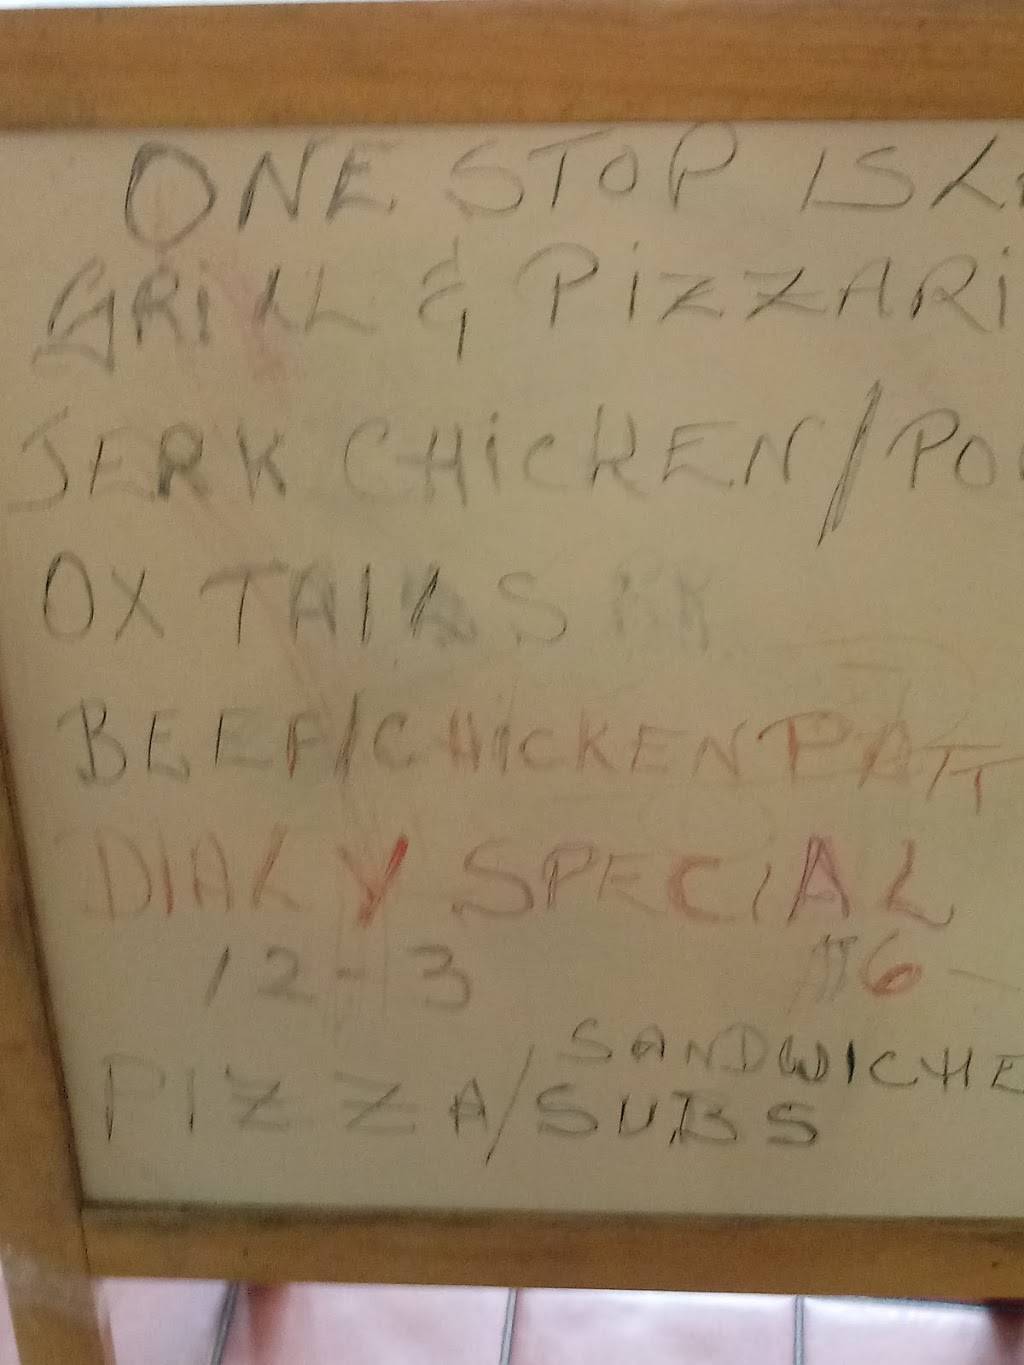 ONE STOP ISLA
GRILL & PIZZARI
JERK CHICKEN/PO
OX TAILS
BEEF/CHICKEN PATT
DIALY SPECIAL
12-3 $6
SANDWICHE
PIZZA/SUBS